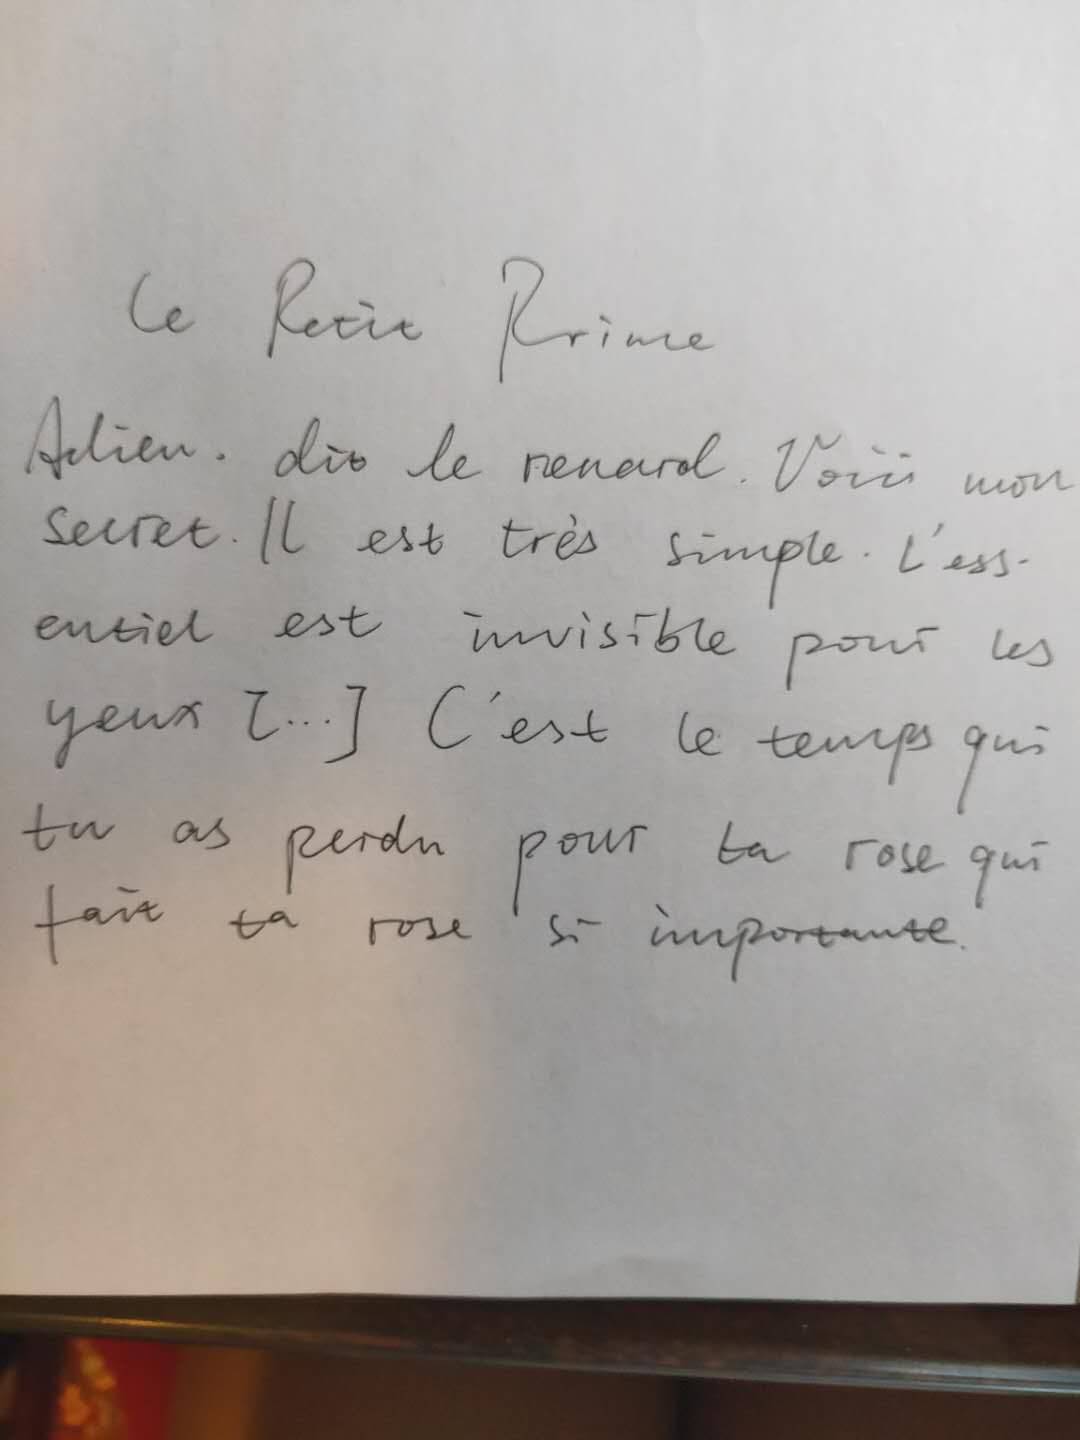 Le Petit Prince
Adieu. dit le renard. Voici mon
secret. Il est très simple. L'ess-
entiel est invisible pour les
yeux [...] C'est le temps qui
tu as perdu pour ta rose qui
fait ta rose si importante.